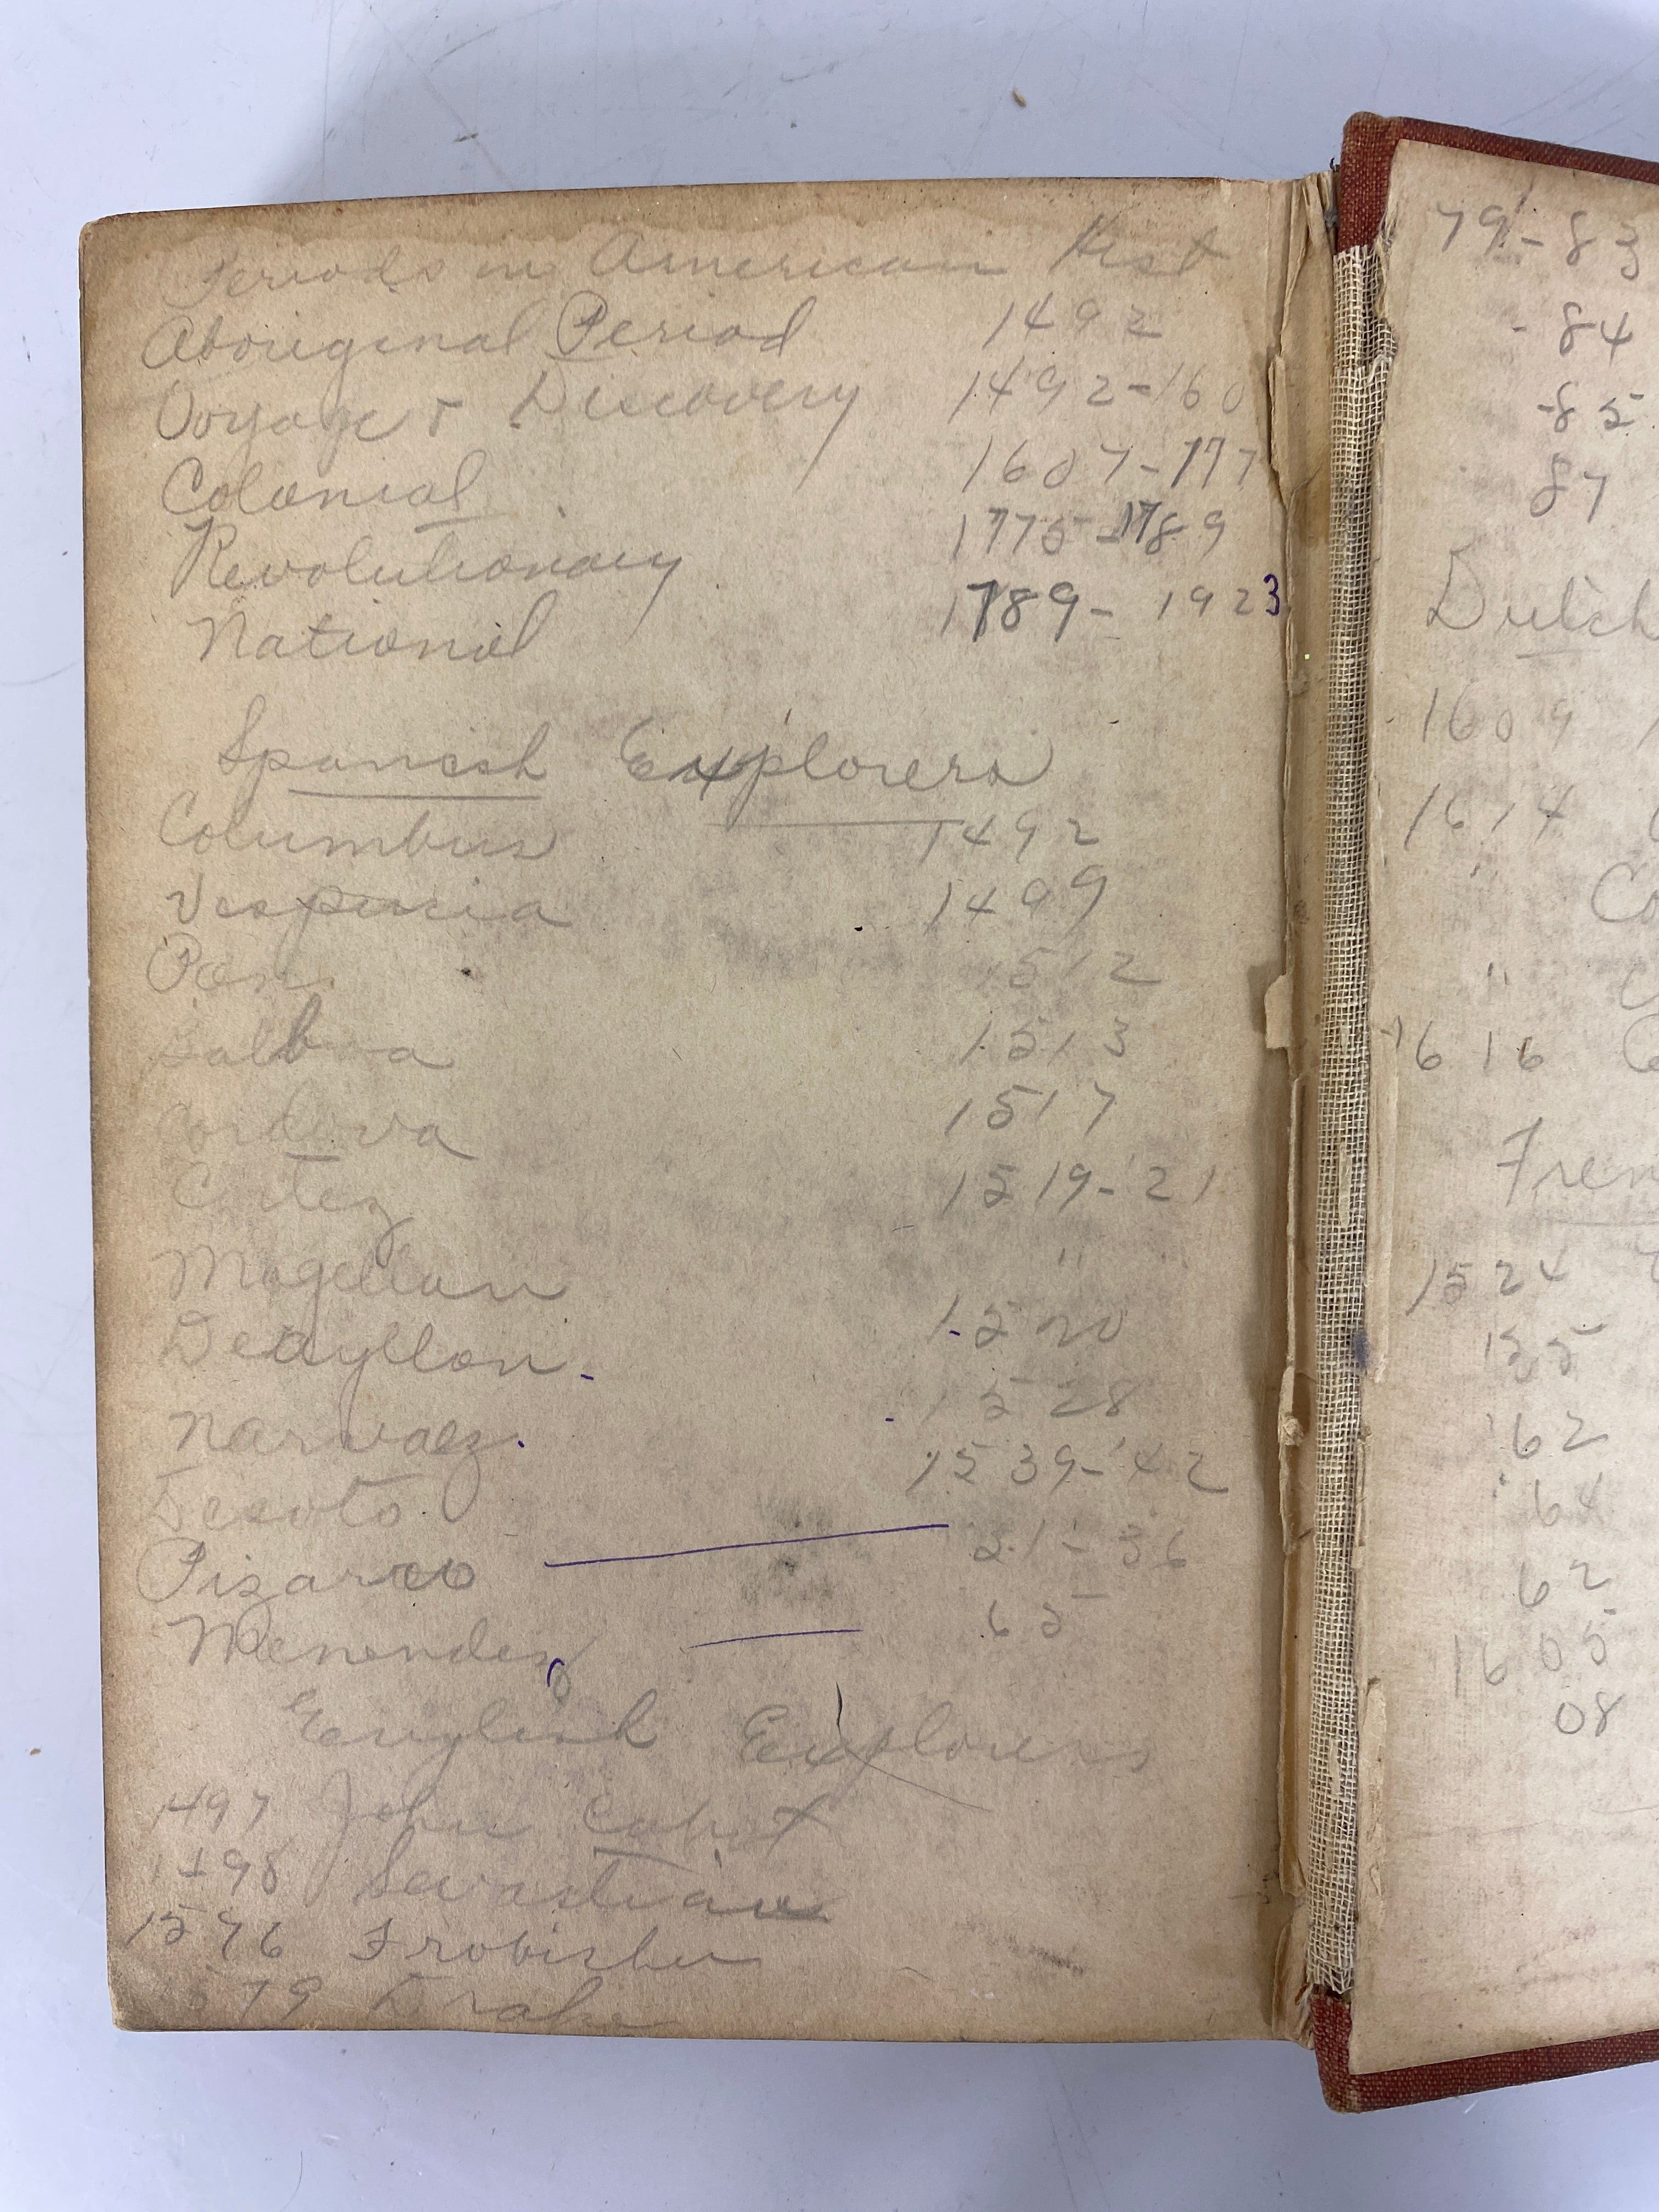 Periods in American Hist
Aboriginal Period 1492
Voyage & Discovery 1492-160
Colonial 1607-177
Revolutionary 1775-1789
National 1789-1923
Spanish Explorers
Columbus 1492
Vespucia 1499
Pon 1512
Balboa 1513
Cordova 1517
Cortez 1519-'21
Magellan "
Deayllon 1520
Narvaez 1528
Desoto 1539-'42
Pizarro 31-36
Menendez 65
English Explorers
1497 John Cabot
1498 Sevastian
1576 Frobisher
579 Drake
79-83
-84
-85
87
Dutch
1609
1614
" Co
"
1616
Fren
1524
35
'62
'64
62
1605
08